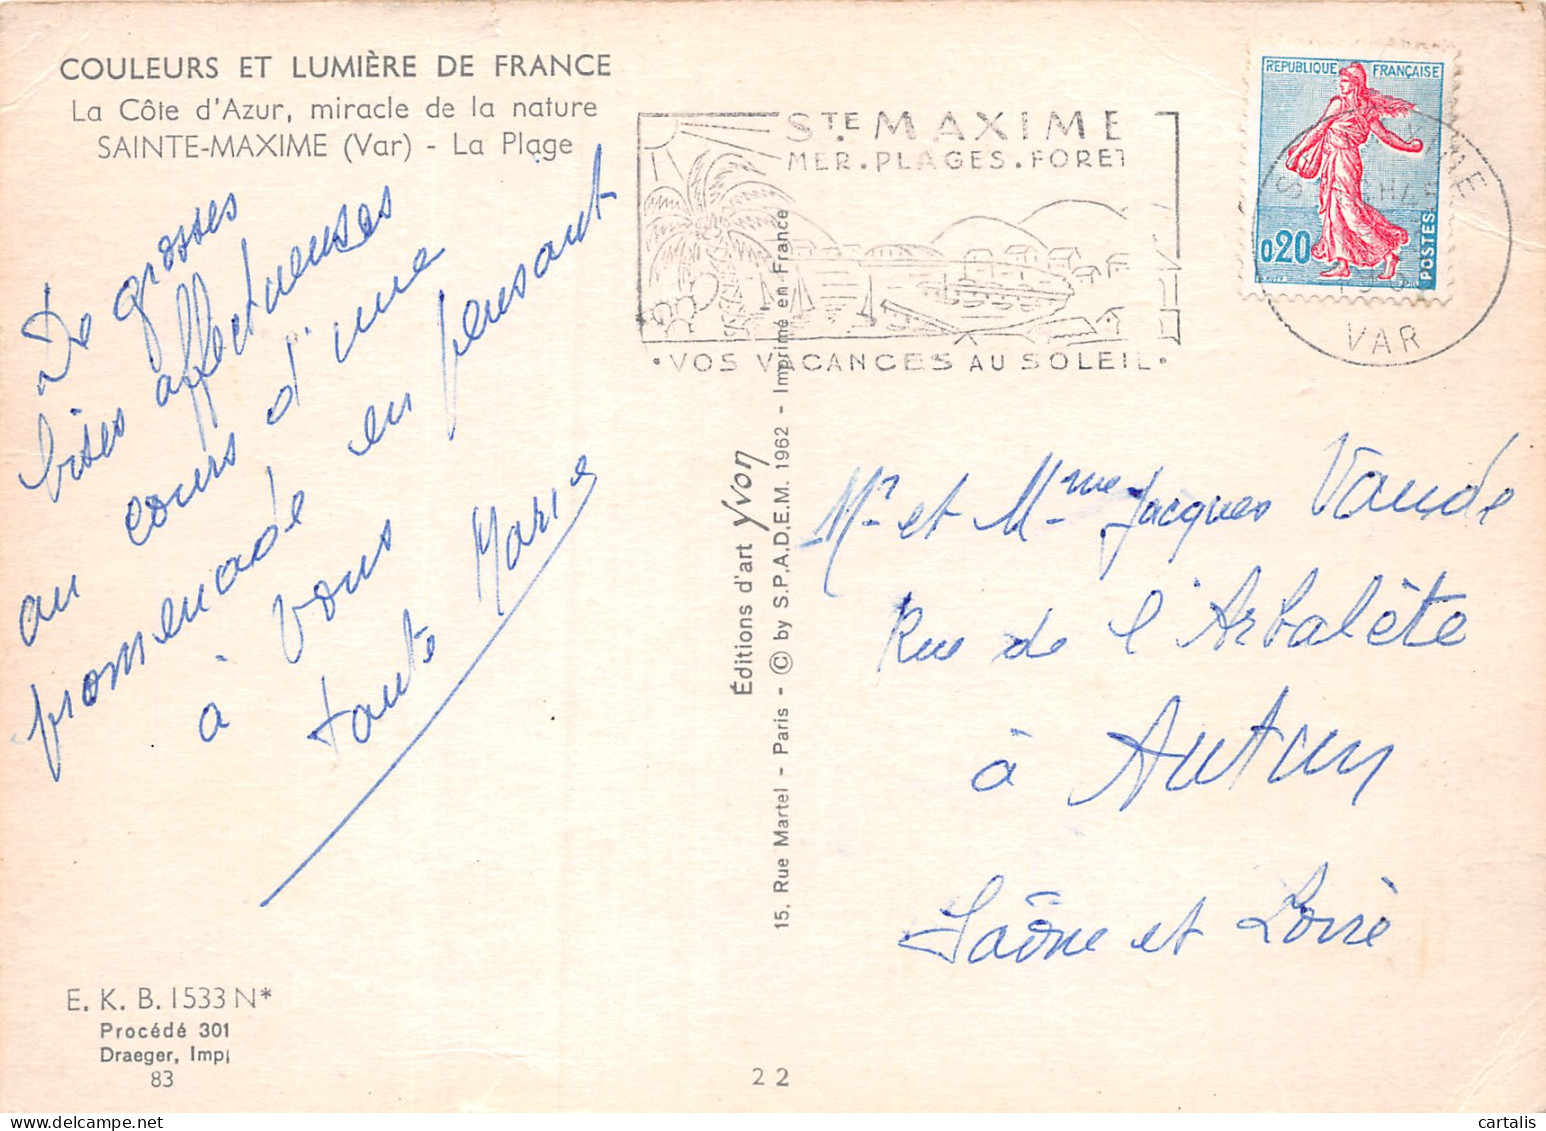 COULEURS ET LUMIÈRE DE FRANCE
La Côte d'Azur, miracle de la nature
SAINTE-MAXIME (Var) - La Plage
De grosses
bises affectueuses
au cours d'une
promenade en pensant
à vous
tante Marie
E. K. B. 1533 N*
Procédé 301
Draeger, Imp
83
STE MAXIME
MER . PLAGES . FORET
• VOS VACANCES AU SOLEIL •
REPUBLIQUE FRANÇAISE
0,20
POSTES
VAR
Éditions d'art Yvon
15, Rue Martel - Paris - © by S.P.A.D.E.M. 1962 - Imprimé en France
Mr et Mme Jacques Vaude
Rue de l'Arbalète
à Autun
Saône et Loire
22
cartalis
www.delcampe.net